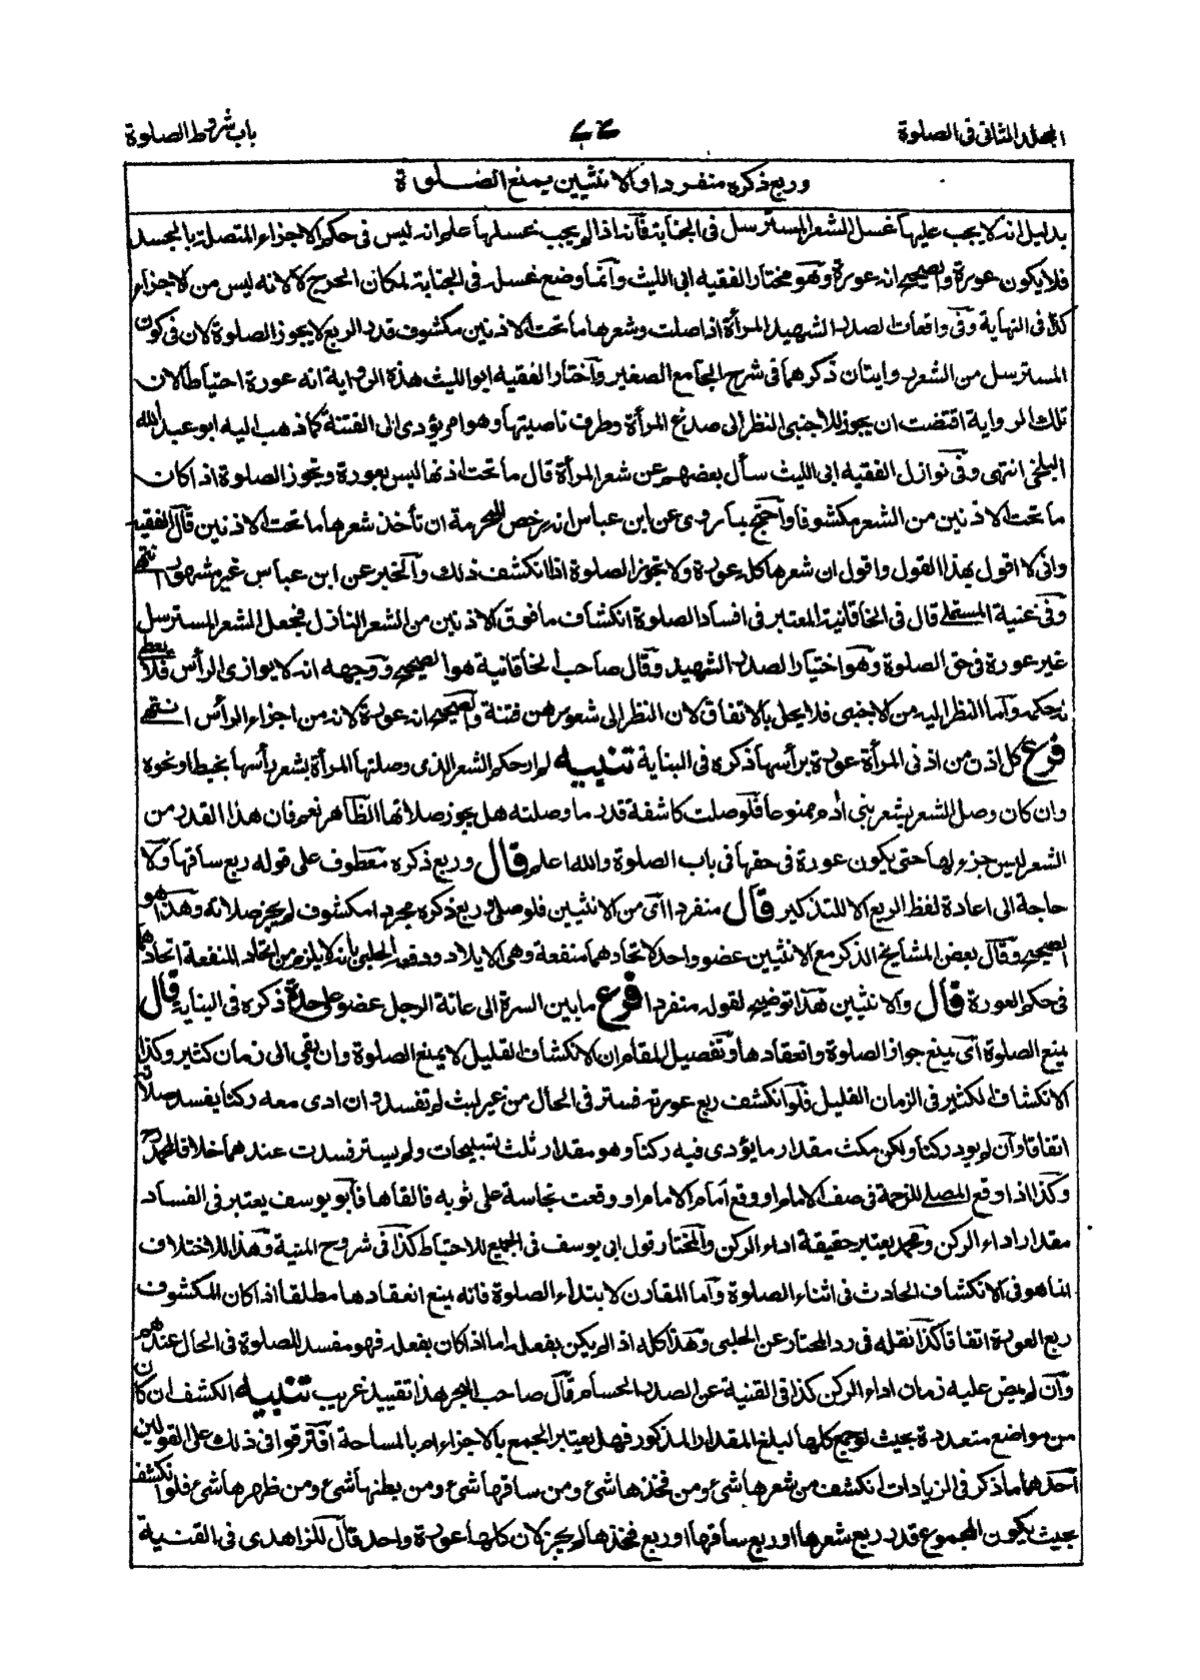 المجلد الثاني في الصلوة
باب شروط الصلوة
وربع ذكره منفردا والانثيين يمنع الصلوة
بدليل انه لا يجب عليها غسل الشعر المسترسل في الجنابة فانه اذا لم يجب غسلها علم انه ليس في حكم الاجزاء المتصلة بالجسد
فلا يكون عورة والصحيح انه عورة وهو مختار الفقيه ابي الليث وانما وضع غسله في الجنابة لمكان الحرج لا لانه ليس من الاجزاء
كذا في النهاية وفي واقعات الصدر الشهيد المرأة اذا صلت وشعرها ما تحت الاذنين مكشوف قدر الربع لا يجوز الصلوة لان في كون
المسترسل من الشعر روايتان ذكرهما في شرح الجامع الصغير واختار الفقيه ابو الليث هذه الرواية انه عورة احتياطا لان
تلك الرواية اقتضت ان يجوز للاجنبي النظر الى صدغ المرأة وطرف ناصيتها وهو امر يؤدي الى الفتنة كما ذهب اليه ابو عبد الله
البلخي انتهى وفي نوازل الفقيه ابي الليث سأل بعضهم عن شعر المرأة قال ما تحت اذنها ليس بعورة وتجوز الصلوة اذا كان
ما تحت الاذنين من الشعر مكشوفا واحتج بما روي عن ابن عباس انه رخص للمحرمة ان تأخذ شعرها ما تحت الاذنين قال الفقيه
واني لا اقول بهذا القول واقول ان شعرها كله عورة ولا تجوز الصلوة اذا انكشف ذلك والخبر عن ابن عباس غير مشهور انتهى
وفي غنية المستملي قال في الخاقانية المعتبر في افساد الصلوة انكشاف ما فوق الاذنين من الشعر النازل فجعل الشعر المسترسل
غير عورة في حق الصلوة وهو اختيار الصدر الشهيد وقال صاحب الخاقانية هو الصحيح ووجهه انه لا يوازي الرأس فلا يعطى
له حكمه واما النظر اليه من الاجنبي فلا يحل بالاتفاق لان النظر الى شعورهن فتنة والصحيح انه عورة لانه من اجزاء الرأس انتهى
فرع كل اذن من اذني المرأة عورة برأسها ذكره في البناية تنبيه لم ار حكم الشعر الذي وصلتها المرأة بشعر رأسها بخيط او نحوه
وان كان وصل الشعر بشعر بني ادم ممنوعا فلو صلت كاشفة قدر ما وصلته هل يجوز صلاتها الظاهر نعم فان هذا القدر من
الشعر ليس جزء لها حتى يكون عورة في حقها في باب الصلوة والله اعلم قال وربع ذكره معطوف على قوله ربع ساقها ولا
حاجة الى اعادة لفظ الربع الا للتذكير قال منفردا اي من الانثيين فلو صلى وربع ذكره مجردا مكشوف لم يجز صلاته وهذا هو
الصحيح وقال بعض المشايخ الذكر مع الانثيين عضو واحد لاتحادهما منفعة وهي الايلاد ودفعه الحلبي بانه لا يلزم من اتحاد المنفعة اتحادهما
في حكم العورة قال والانثيين هذا توضيح لقوله منفردا فرع ما بين السرة الى عانة الرجل عضو على حدة ذكره في البناية قال
يمنع الصلوة اي يمنع جواز الصلوة وانعقادها وتفصيل المقام ان الانكشاف القليل لا يمنع الصلوة وان بقي الى زمان كثير وكذا
الانكشاف الكثير في الزمان القليل فلو انكشف ربع عورته فستر في الحال من غير لبث لم تفسد وان ادى معه ركنا يفسد صلاته
اتفاقا وان لم يود ركنا ولكن مكث مقدار ما يؤدى فيه ركنا وهو مقدار ثلث تسبيحات ولم يستر فسدت عندهما خلافا لمحمد
وكذا اذا وقع المصلي للزحمة في صف الامام او وقع امام الامام او وقعت نجاسة على ثوبه فالقاها فابو يوسف يعتبر في الفساد
مقدار اداء الركن ومحمد يعتبر حقيقة اداء الركن والمختار قول ابي يوسف في الجميع للاحتياط كذا في شروح المنية وهذا الاختلاف
انما هو في الانكشاف الحادث في اثناء الصلوة واما المقارن لابتداء الصلوة فانه يمنع انعقادها مطلقا اذا كان المكشوف
ربع العورة اتفاقا كذا نقله في رد المحتار عن الحلبي وهذا كله اذا لم يكن بفعله اما اذا كان بفعله فهو مفسد للصلوة في الحال عندهم
وان لم يمض عليه زمان اداء الركن كذا في القنية عن الصدر الحسام قال صاحب البحر هذا تقييد غريب تنبيه الكشف ان كان
من مواضع متعددة بحيث لو جمع كلها لبلغ المقدار المذكور فهل يعتبر الجمع بالاجزاء ام بالمساحة افترقوا في ذلك على القولين
احدهما ما ذكر في الزيادات انكشف من شعرها شيء ومن فخذها شيء ومن ساقها شيء ومن بطنها شيء ومن ظهرها شيء فلو انكشف
بحيث يكون المجموع قدر ربع شعرها او ربع ساقها او ربع فخذها لم يجز لان كلها عورة واحد قال الزاهدي في القنية